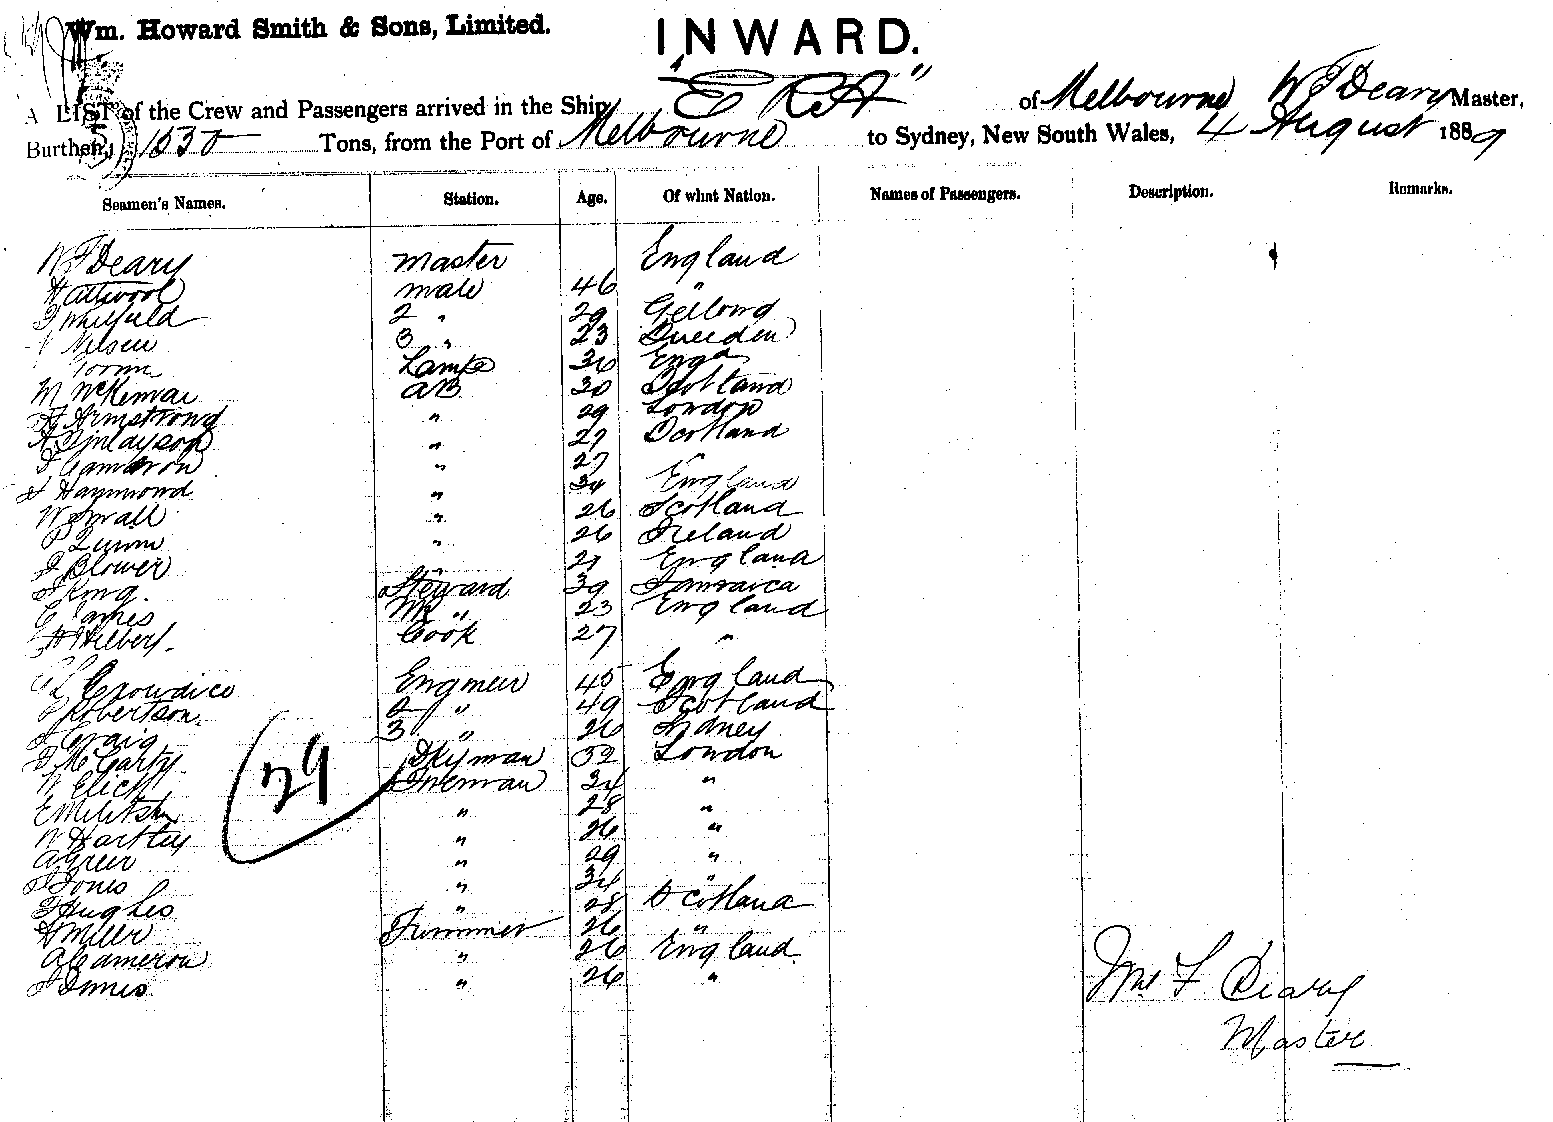 Wm. Howard Smith & Sons, Limited.
INWARD.
A LIST of the Crew and Passengers arrived in the Ship "ERA" of Melbourne W F Deary Master,
Burthen, 1530 Tons, from the Port of Melbourne to Sydney, New South Wales, 4 August 1889
Seamen's Names. Station. Age. Of what Nation. Names of Passengers. Description. Remarks.
W F Deary Master England
H Attwool Mate 46 "
T Whitfield 2 " 29 Gellong
Nelsen 3 " 23 Sweeden
Lamps 36 Engd
M McKinnai AB 30 Scotland
H Armstrong " 29 London
A Finlayson " 27 Scotland
D Cameron " 27 "
J Haymond " 34 England
W Small " 26 Scotland
P Quinn " 26 Ireland
J Blower " 21 England
J King. Steward 39 Jamaica
G James " 23 England
H Hilbert. Cook 27 "
Crowdice Engineer 45 England
Robertson. 2 " 49 Scotland
J Craig 3 " 26 Sidney
J McCarty Dkyman 32 London
W Elick Fireman 34 "
E Militsh " 28 "
W Hartley " 26 "
A Greer " 29 "
J Jones " 34 "
J Hughes " 28 Scotland
H Miller Trimmer 26 "
A Cameron " 26 England
J Innes " 26 "
29
Wm F Deary
Master